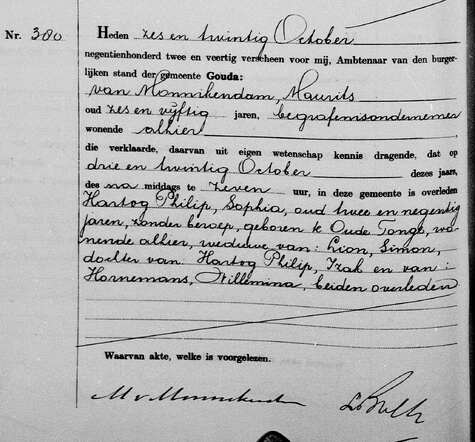 Nr. 380
Heden zes en twintig October
negentienhonderd twee en veertig verscheen voor mij, Ambtenaar van den burger-
lijken stand der gemeente Gouda:
van Monnikendam, Maurits
oud zes en vijftig jaren, begrafenisondernemer
wonende alhier
die verklaarde, daarvan uit eigen wetenschap kennis dragende, dat op
drie en twintig October dezes jaars,
des na middags te zeven uur, in deze gemeente is overleden
Hartog Philip, Sophia, oud twee en negentig
jaren, zonder beroep, geboren te Oude Tonge, wo-
nende alhier, weduwe van: Lion, Simon,
dochter van: Hartog Philip, Izak en van:
Hornemans, Willemina, beiden overleden
Waarvan akte, welke is voorgelezen.
M v Monnikendam